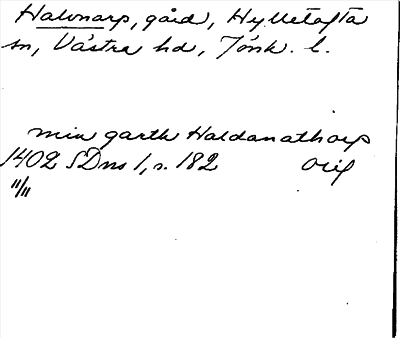 Halvnarp, gård, Hylletofta
sn, Västra hd, Jönk. l.
min garth Haldanathorp
1402 SDns 1, s. 182 Orig
11/11